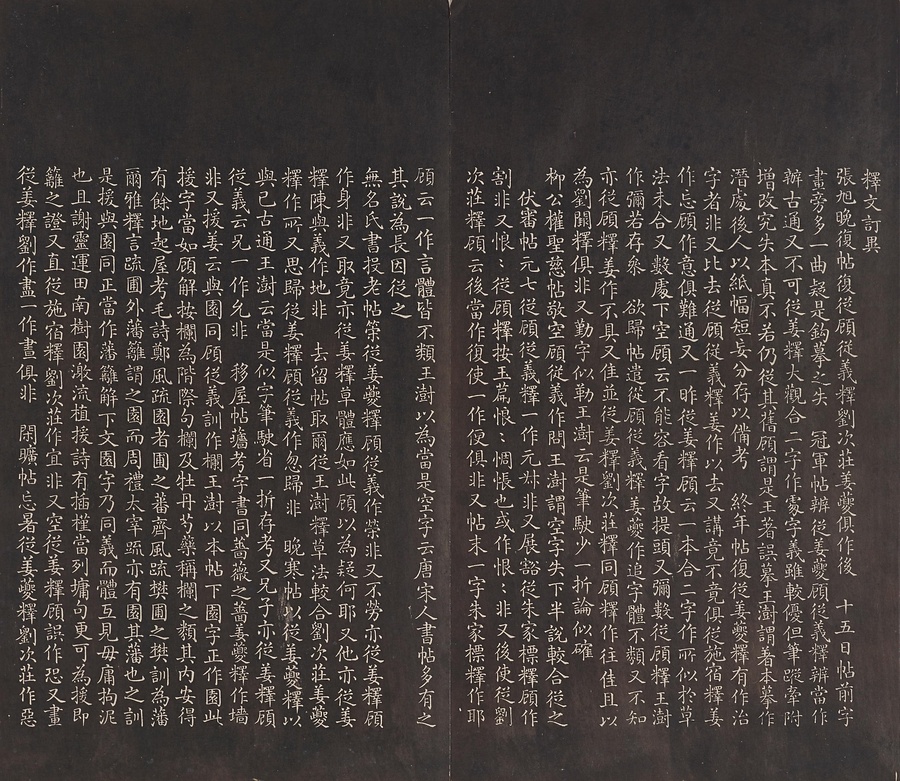 釋文訂異
張旭晚復帖復從顧從義釋劉次莊姜夔俱作後　十五日帖前字
畫旁多一曲疑是鈎摹之失　冠軍帖辨從姜夔顧從義釋辨當作
辦古通又不可從姜釋大觀合二字作處字義雖較優但筆蹤牽附
增改究失本真不若仍從其舊顧謂是王著誤摹王澍謂著本摹作
潛處後人以紙幅短妄分存以備考　終年帖復從姜夔釋有作治
字者非又比去從顧從義釋姜作以去又講竟不竟俱從施宿釋姜
作忘顧作意俱難通又一昨從姜釋顧云一本合二字作所似於草
法未合又數處下空顧云不能容看字故提頭又彌數從顧釋王澍
作彌若存參　欲歸帖遣從顧從義釋姜夔作追字體不類又不知
亦從顧釋姜作不具又佳並從姜釋劉次莊釋同顧釋作往佳且以
為劉闗釋俱非又勤字似勒王澍云是筆駛少一折論似確
柳公權聖慈帖敬空顧從義作問王澍謂空字失下半說較合從之
　伏審帖元七從顧從義釋一作元妹非又展豁從朱家標釋顧作
割非又恨〻從顧釋按玉篇恨〻惆悵也或作悵〻非又後使從劉
次莊釋顧云後當作復使一作便俱非又帖末一字朱家標釋作耶
顧云一作言體皆不類王澍以為當是空字云唐宋人書帖多有之
其說為長因從之
無名氏書投老帖筞從姜夔釋顧從義作榮非又不勞亦從姜釋顧
作身非又取竟亦從姜釋草體應如此顧以為疑何耶又他亦從姜
釋陳與義作地非　去留帖取爾從王澍釋草法較合劉次莊姜夔
釋作所又思歸從姜釋顧從義作忽歸非　晚寒帖以從姜夔釋以
與已古通王澍云當是似字筆駛省一折存考又兄子亦從姜釋顧
從義云兄一作允非　移屋帖墻考字書同薔薇之薔姜夔釋作墻
非又援姜云與園同顧從義訓作欄王澍以本帖下園字正作園此
援字當如顧解按欄為階際句欄及牡丹芍藥稱欄之類其內安得
有餘地起屋考毛詩鄭風疏園者圃之蕃齊風疏樊圃之樊訓為藩
爾雅釋言疏圃外藩籬謂之園而周禮太宰疏亦有園其藩也之訓
是援與園同正當作藩籬解下文園字乃同義而體互見毋庸拘泥
也且謝靈運田南樹園激流植援詩有插槿當列墉句更可為援即
籬之證又直從施宿釋劉次莊作宜非又空從姜釋顧誤作恐又畫
從姜釋劉作盡一作晝俱非　閑曠帖忘暑從姜夔釋劉次莊作惡